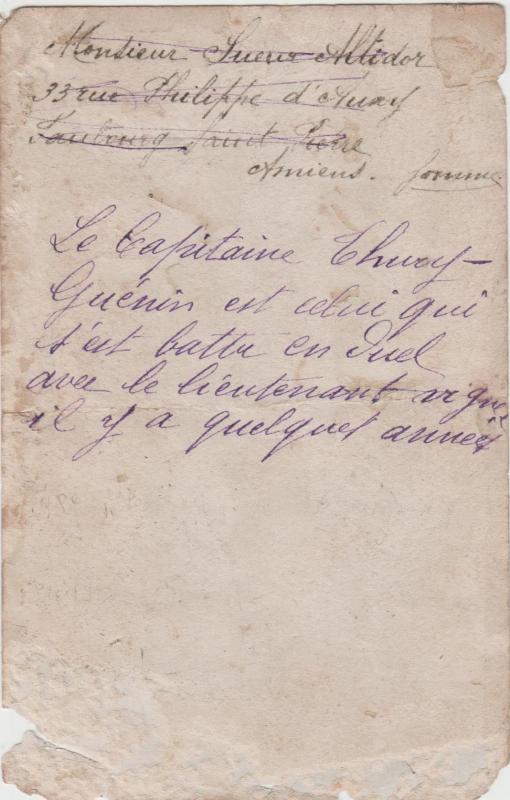 Monsieur Sueur Altidor
33 rue Philippe d'Auxy
Faubourg Saint Pierre
Amiens. Somme
Le Capitaine Thuroy-
Guénin est celui qui
s'est battu en duel
avec le lieutenant
il y a quelques années